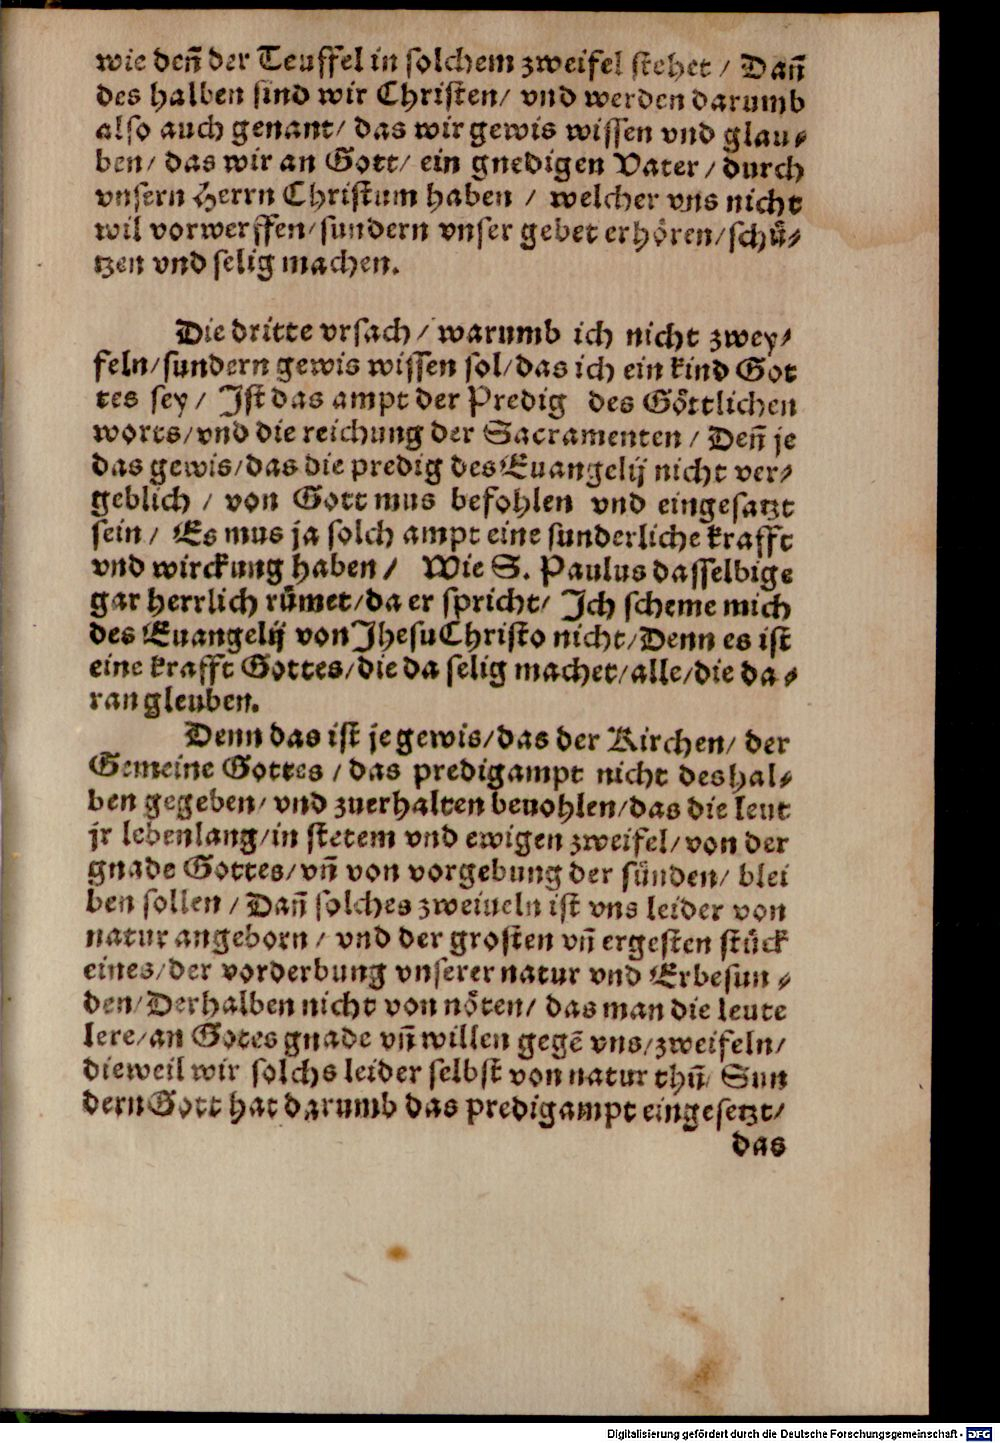 wie den̄ der Teuffel in solchem zweifel stehet / Dan̄
des halben sind wir Christen/ vnd werden darumb
also auch genant/ das wir gewis wissen vnd glau⸗
ben/ das wir an Gott/ ein gnedigen Vater / durch
vnsern Herrn Christum haben / welcher vns nicht
wil vorwerffen/ sundern vnser gebet erhören/ schuͤ⸗
tzen vnd selig machen.
Die dritte vrsach / warumb ich nicht zwey⸗
feln/ sundern gewis wissen sol/ das ich ein kind Got
tes sey / Jst das ampt der Predig des Göttlichen
worts/ vnd die reichung der Sacramenten / Den̄ je
das gewis/ das die predig des Euangelij nicht ver⸗
geblich / von Gott mus befohlen vnd eingesatzt
sein / Es mus ja solch ampt eine sunderliche krafft
vnd wirckung haben / Wie S. Paulus dasselbige
gar herrlich ruͤmet/ da er spricht/ Jch scheme mich
des Euangelij von Jhesu Christo nicht/ Denn es ist
eine krafft Gottes/ die da selig machet/ alle/ die da⸗
ran gleuben.
Denn das ist je gewis/ das der Kirchen/ der
Gemeine Gottes / das predigampt nicht deshal⸗
ben gegeben/ vnd zuerhalten beuohlen/ das die leut
jr lebenlang/ in stetem vnd ewigen zweifel/ von der
gnade Gottes/ vn̄ von vorgebung der suͤnden/ blei
ben sollen / Dan̄ solches zweiueln ist vns leider von
natur angeborn / vnd der grosten vn̄ ergesten stuͤck
eines/ der vorderbung vnserer natur vnd Erbesun⸗
den/ Derhalben nicht von nöten/ das man die leute
lere/ an Gotes gnade vn̄ willen gegē vns/ zweifeln/
dieweil wir solchs leider selbst von natur thun̄/ Sun
dern Gott hat darumb das predigampt eingesetzt/
das
Digitalisierung gefördert durch die Deutsche Forschungsgemeinschaft - DFG